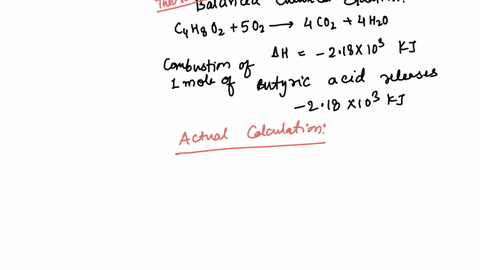 Balanced Chemical
C4H8O2 + 5O2 → 4CO2 + 4H2O
ΔH = -2.18×10³ KJ
Combustion of
1 mole of Butyric acid releases
-2.18×10³ KJ
Actual Calculation: